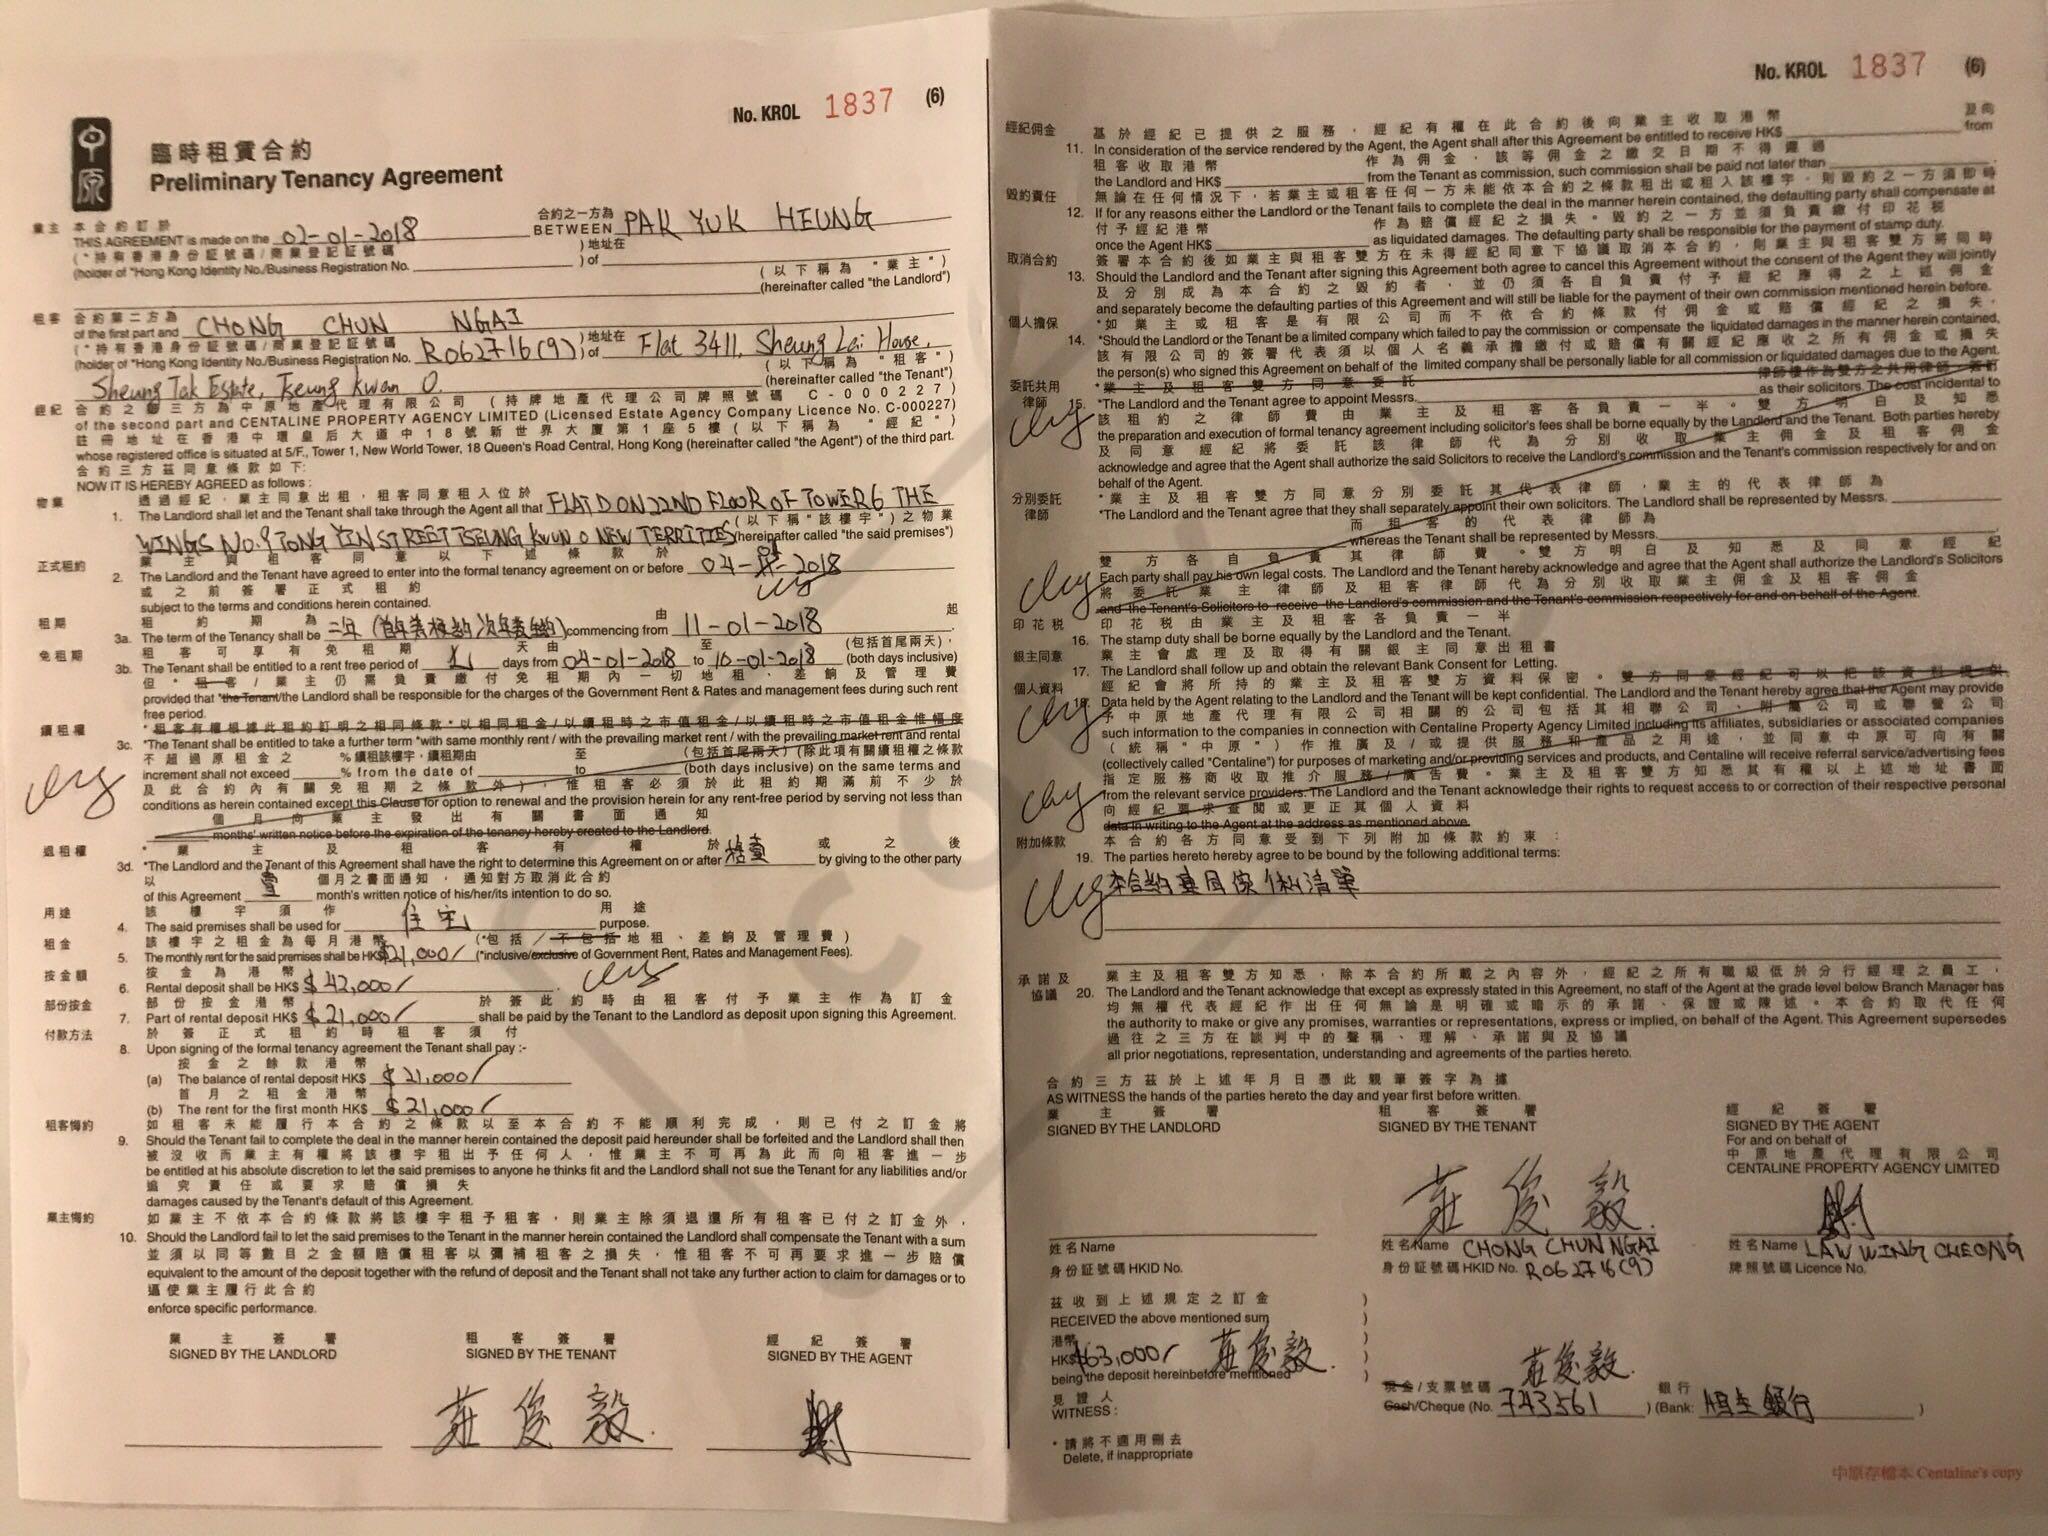 No. KROL 1837 (6)
中原
臨時租賃合約
Preliminary Tenancy Agreement
業主 本合約訂於 合約之一方為
THIS AGREEMENT is made on the 02-01-2018 BETWEEN PAK YUK HEUNG
(*持有香港身份証號碼/商業登記証號碼 )地址在
(holder of *Hong Kong Identity No./Business Registration No. ) of
(以下稱為"業主")
(hereinafter called "the Landlord")
租客 合約第二方為
of the first part and CHONG CHUN NGAI
(*持有香港身份証號碼/商業登記証號碼 )地址在
(holder of *Hong Kong Identity No./Business Registration No. R062716(9) ) of Flat 3411, Sheung Lai House,
(以下稱為"租客")
Sheung Tak Estate, Tseung Kwan O. (hereinafter called "the Tenant")
經紀 合約之第三方為中原地產代理有限公司(持牌地產代理公司牌照號碼 C-000227)
of the second part and CENTALINE PROPERTY AGENCY LIMITED (Licensed Estate Agency Company Licence No. C-000227)
註冊地址在香港中環皇后大道中18號新世界大廈第1座5樓(以下稱為"經紀")
whose registered office is situated at 5/F., Tower 1, New World Tower, 18 Queen's Road Central, Hong Kong (hereinafter called "the Agent") of the third part.
合約三方茲同意條款如下:
NOW IT IS HEREBY AGREED as follows :
物業 透過經紀,業主同意出租,租客同意租入位於
1. The Landlord shall let and the Tenant shall take through the Agent all that FLAT D ON 22ND FLOOR OF TOWER 6 THE
(以下稱"該樓宇")之物業
WINGS NO.9 TONG YIN STREET TSEUNG KWUN O NEW TERRITIES (hereinafter called "the said premises")
正式租約 業主與租客同意以下述條款於
2. The Landlord and the Tenant have agreed to enter into the formal tenancy agreement on or before 04-01-2018
或之前簽署正式租約
subject to the terms and conditions herein contained.
租期 租約期為 由 起
3a. The term of the Tenancy shall be commencing from 11-01-2018 .
免租期 租客可享有免租期 天由 至 (包括首尾兩天),
3b. The Tenant shall be entitled to a rent free period of days from 04-01-2018 to 10-01-2018 (both days inclusive)
但*租客/業主仍需負責繳付免租期內一切地租、差餉及管理費
provided that *the Tenant/the Landlord shall be responsible for the charges of the Government Rent & Rates and management fees during such rent
free period.
續租權 *租客有權根據此租約訂明之相同條款*以相同租金/以續租時之市值租金/以續租時之市值租金惟幅度
3c. *The Tenant shall be entitled to take a further term *with same monthly rent / with the prevailing market rent / with the prevailing market rent and rental
不超過原租金之 %續租該樓宇,續租期由 至 (包括首尾兩天)(除此項有關續租權之條款
increment shall not exceed % from the date of to (both days inclusive) on the same terms and
及此合約內有關免租期之條款外),惟租客必須於此租約期滿前不少於
conditions as herein contained except this Clause for option to renewal and the provision herein for any rent-free period by serving not less than
個月向業主發出有關書面通知
months' written notice before the expiration of the tenancy hereby created to the Landlord.
退租權 *業主及租客有權於 或之後
3d. *The Landlord and the Tenant of this Agreement shall have the right to determine this Agreement on or after by giving to the other party
以 個月之書面通知,通知對方取消此合約
of this Agreement 壹 month's written notice of his/her/its intention to do so.
用途 該樓宇須作 用途
4. The said premises shall be used for 住宅 purpose.
租金 該樓宇之租金為每月港幣 (*包括/不包括地租、差餉及管理費)
5. The monthly rent for the said premises shall be HK$ $21,000/ (*inclusive/exclusive of Government Rent, Rates and Management Fees).
按金額 按金為港幣
6. Rental deposit shall be HK$ $42,000/ .
部份按金 部份按金港幣 於簽此約時由租客付予業主作為訂金
7. Part of rental deposit HK$ $21,000/ shall be paid by the Tenant to the Landlord as deposit upon signing this Agreement.
付款方法 於簽正式租約時租客須付
8. Upon signing of the formal tenancy agreement the Tenant shall pay :-
按金之餘款港幣
(a) The balance of rental deposit HK$ $21,000/
首月之租金港幣
(b) The rent for the first month HK$ $21,000/
租客悔約 如租客未能履行本合約之條款以至本合約不能順利完成,則已付之訂金將
9. Should the Tenant fail to complete the deal in the manner herein contained the deposit paid hereunder shall be forfeited and the Landlord shall then
被沒收而業主有權將該樓宇租出予任何人,惟業主不可再為此而向租客進一步
be entitled at his absolute discretion to let the said premises to anyone he thinks fit and the Landlord shall not sue the Tenant for any liabilities and/or
追究責任或要求賠償損失
damages caused by the Tenant's default of this Agreement.
業主悔約 如業主不依本合約條款將該樓宇租予租客,則業主除須退還所有租客已付之訂金外,
10. Should the Landlord fail to let the said premises to the Tenant in the manner herein contained the Landlord shall compensate the Tenant with a sum
並須以同等數目之金額賠償租客以彌補租客之損失,惟租客不可再要求進一步賠償
equivalent to the amount of the deposit together with the refund of deposit and the Tenant shall not take any further action to claim for damages or to
逼使業主履行此合約
enforce specific performance.
業主簽署 租客簽署 經紀簽署
SIGNED BY THE LANDLORD SIGNED BY THE TENANT SIGNED BY THE AGENT
莊俊毅
No. KROL 1837 (6)
經紀佣金 基於經紀已提供之服務,經紀有權在此合約後向業主收取港幣 及向
11. In consideration of the service rendered by the Agent, the Agent shall after this Agreement be entitled to receive HK$ from
租客收取港幣 作為佣金,該等佣金之繳交日期不得遲過
the Landlord and HK$ from the Tenant as commission, such commission shall be paid not later than .
毀約責任 無論在任何情況下,若業主或租客任何一方未能依本合約之條款租出或租入該樓宇,則毀約之一方須即時
12. If for any reasons either the Landlord or the Tenant fails to complete the deal in the manner herein contained, the defaulting party shall compensate at
付予經紀港幣 作為賠償經紀之損失。毀約之一方並須負責繳付印花稅
once the Agent HK$ as liquidated damages. The defaulting party shall be responsible for the payment of stamp duty.
取消合約 簽署本合約後如業主與租客雙方在未得經紀同意下協議取消本合約,則業主與租客雙方將同時
13. Should the Landlord and the Tenant after signing this Agreement both agree to cancel this Agreement without the consent of the Agent they will jointly
及分別成為本合約之毀約者,並仍須各自負責付予經紀應得之上述佣金
and separately become the defaulting parties of this Agreement and will still be liable for the payment of their own commission mentioned herein before.
個人擔保 *如業主或租客是有限公司而不依合約條款付佣金或賠償經紀之損失,
14. *Should the Landlord or the Tenant be a limited company which failed to pay the commission or compensate the liquidated damages in the manner herein contained,
該有限公司的簽署代表須以個人名義承擔繳付或賠償有關經紀應收之所有佣金或損失
the person(s) who signed this Agreement on behalf of the limited company shall be personally liable for all commission or liquidated damages due to the Agent.
委託共用律師 *業主及租客雙方同意委託 律師樓作為雙方之共用律師,簽訂
15. *The Landlord and the Tenant agree to appoint Messrs. as their solicitors. The cost incidental to
該租約之律師費由業主及租客各負責一半。雙方明白及知悉
the preparation and execution of formal tenancy agreement including solicitor's fees shall be borne equally by the Landlord and the Tenant. Both parties hereby
及同意經紀將委託該律師代為分別收取業主佣金及租客佣金
acknowledge and agree that the Agent shall authorize the said Solicitors to receive the Landlord's commission and the Tenant's commission respectively for and on
behalf of the Agent.
分別委託律師 *業主及租客雙方同意分別委託其代表律師,業主的代表律師為
*The Landlord and the Tenant agree that they shall separately appoint their own solicitors. The Landlord shall be represented by Messrs.
而租客的代表律師為
whereas the Tenant shall be represented by Messrs. .
雙方各自負責其律師費。雙方明白及知悉及同意經紀
Each party shall pay his own legal costs. The Landlord and the Tenant hereby acknowledge and agree that the Agent shall authorize the Landlord's Solicitors
將委託業主律師及租客律師代為分別收取業主佣金及租客佣金
and the Tenant's Solicitors to receive the Landlord's commission and the Tenant's commission respectively for and on behalf of the Agent.
印花稅 印花稅由業主及租客各負責一半
16. The stamp duty shall be borne equally by the Landlord and the Tenant.
銀主同意 業主會處理及取得有關銀主同意出租書
17. The Landlord shall follow up and obtain the relevant Bank Consent for Letting.
個人資料 經紀會將所持的業主及租客雙方資料保密。雙方同意經紀可以把該資料提供
18. Data held by the Agent relating to the Landlord and the Tenant will be kept confidential. The Landlord and the Tenant hereby agree that the Agent may provide
予中原地產代理有限公司相關的公司包括其相聯公司、附屬公司或聯營公司
such information to the companies in connection with Centaline Property Agency Limited including its affiliates, subsidiaries or associated companies
(統稱"中原")作推廣及/或提供服務和產品之用途,並同意中原可向有關
(collectively called "Centaline") for purposes of marketing and/or providing services and products, and Centaline will receive referral service/advertising fees
指定服務商收取推介服務/廣告費。業主及租客雙方知悉其有權以上述地址書面
from the relevant service providers. The Landlord and the Tenant acknowledge their rights to request access to or correction of their respective personal
向經紀要求查閱或更正其個人資料
data in writing to the Agent at the address as mentioned above.
附加條款 本合約各方同意受到下列附加條款約束:
19. The parties hereto hereby agree to be bound by the following additional terms:
承諾及協議 業主及租客雙方知悉,除本合約所載之內容外,經紀之所有職級低於分行經理之員工,
20. The Landlord and the Tenant acknowledge that except as expressly stated in this Agreement, no staff of the Agent at the grade level below Branch Manager has
均無權代表經紀作出任何無論是明確或暗示的承諾、保證或陳述。本合約取代任何
the authority to make or give any promises, warranties or representations, express or implied, on behalf of the Agent. This Agreement supersedes
過往之三方在談判中的聲稱、理解、承諾與及協議
all prior negotiations, representation, understanding and agreements of the parties hereto.
合約三方茲於上述年月日憑此親筆簽字為據
AS WITNESS the hands of the parties hereto the day and year first before written.
業主簽署 租客簽署 經紀簽署
SIGNED BY THE LANDLORD SIGNED BY THE TENANT SIGNED BY THE AGENT
For and on behalf of
中原地產代理有限公司
CENTALINE PROPERTY AGENCY LIMITED
莊俊毅
姓名Name 姓名Name CHONG CHUN NGAI 姓名Name LAW WING CHEONG
身份証號碼HKID No. 身份証號碼HKID No. R062716(9) 牌照號碼Licence No.
茲收到上述規定之訂金 )
RECEIVED the above mentioned sum )
港幣 )
HK$ $63,000/ 莊俊毅 ) 莊俊毅
being the deposit hereinbefore mentioned )
見證人 現金/支票號碼 銀行
WITNESS : Cash/Cheque (No. 743561 ) (Bank: 恒生銀行 )
*請將不適用刪去
Delete, if inappropriate
中原存檔本 Centaline's copy